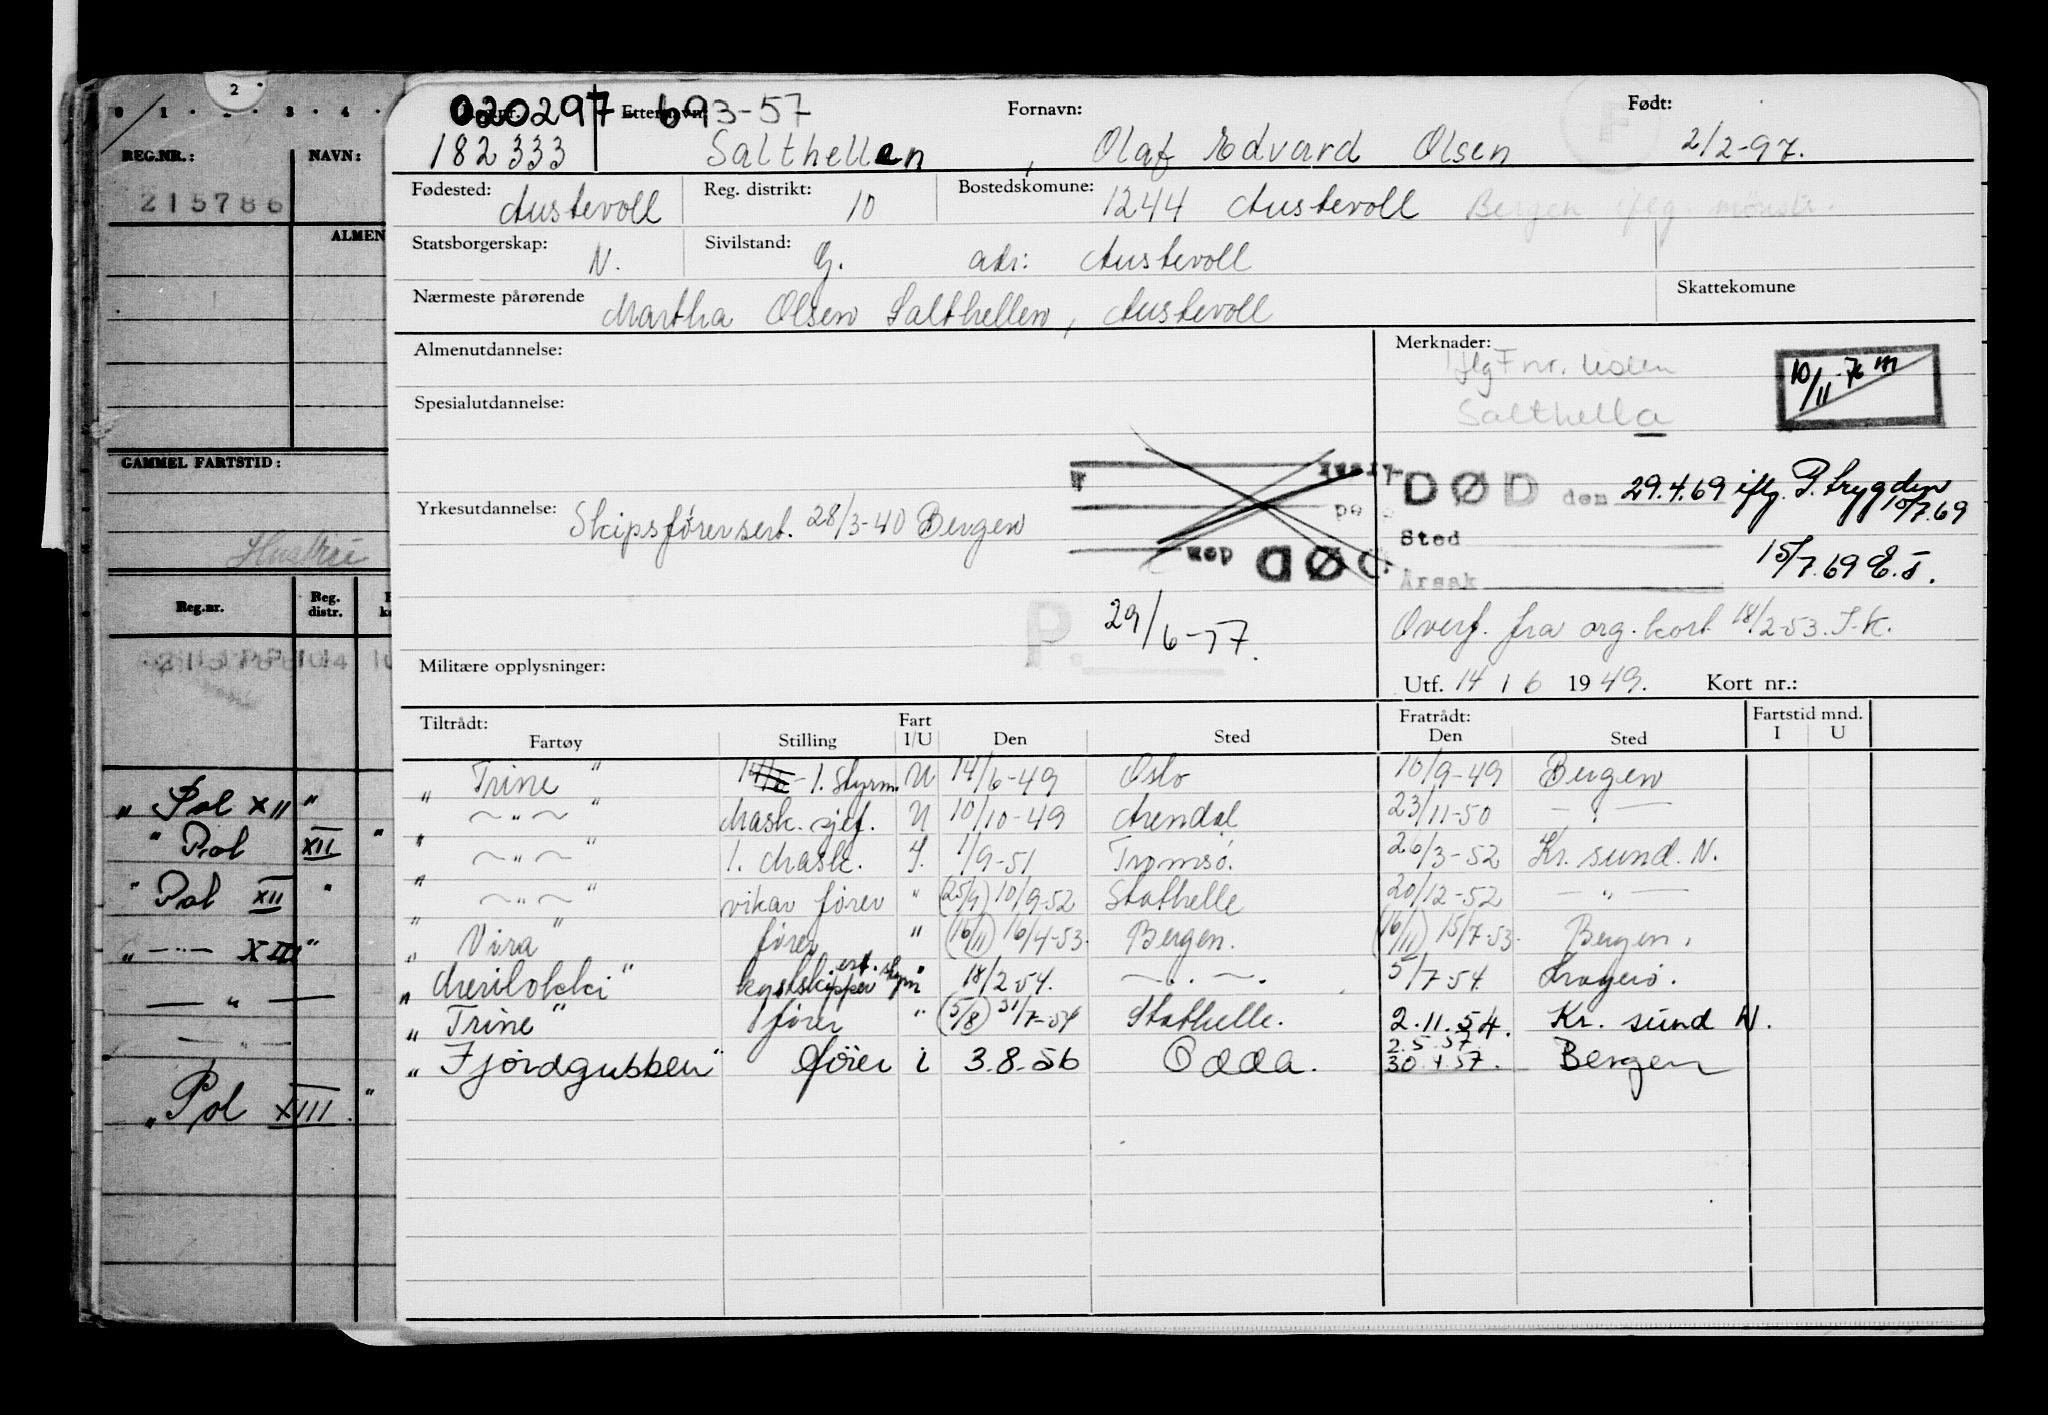 2
0 1 . 2 . 3 . 4 .
REG.NR.: NAVN:
215786
ALMEN
GAMMEL FARTSTID:
Hustru
Reg.nr. Reg. distr.
„ Pol XII "
" Pol XII "
" Pol XII "
„ —..— XIII "
— " —
— " —
„ Pol XIII. "
020297 693-57
Etternavn: Fornavn: Født:
182333 Salthellen, Olaf Edvard Olsen 2/2-97.
F
Fødested: Austevoll Reg. distrikt: 10 Bostedskomune: 1244 Austevoll Bergen iflg mønstr.
Statsborgerskap: N. Sivilstand: G. adr: Austevoll
Nærmeste pårørende Martha Olsen Salthellen, Austevoll Skattekomune
Almenutdannelse: Merknader:
Iflg Fnr.
Salthella
10/11-76 m
Spesialutdannelse:
Yrkesutdannelse: Skipsførersert. 28/3-40 Bergen
DØD den
DØD den 29.4.69 iflg. P. trygden 10/7.69
Sted
15/7.69 E.I.
Årsak
P. 29/6-77.
Overf. fra org. kort 18/2-53. I.K.
Militære opplysninger: Utf. 14 / 6 1949. Kort nr.:
Tiltrådt: Fart Fratrådt: Fartstid mnd.
Fartøy Stilling I/U Den Sted Den Sted I U
„ Trine " 1. Styrm. U 14/6-49 Oslo 10/9-49 Bergen
„ —"— " Mask. sjef. U 10/10-49 Arendal 23/11-50 — " —
„ —"— " 1. Mask. I. 1/9-51 Tromsø. 26/3-52 Kr. sund. N.
„ —"— " vikar fører " (25/9) 10/9-52 Stathelle 20/12-52 — " —
„ Vira " fører " (16/11) 16/4-53. Bergen. (16/11) 15/7-53. Bergen.
„ Merilokki " kystskipper est. styrm " 18/2-54. — . — . 5/7-54. Kragerø.
„ Trine " fører " (5/8) 31/7-54 Stathelle. 2.11.54. Kr. sund N.
2.5.57
„ Fjordgubben " fører i 3.8.56 Odda. 30.4.57. Bergen